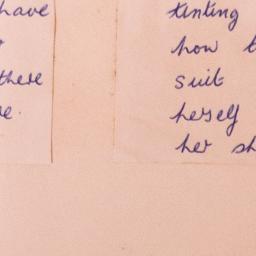 have
there
tinting
how t
suit
herself
her sh